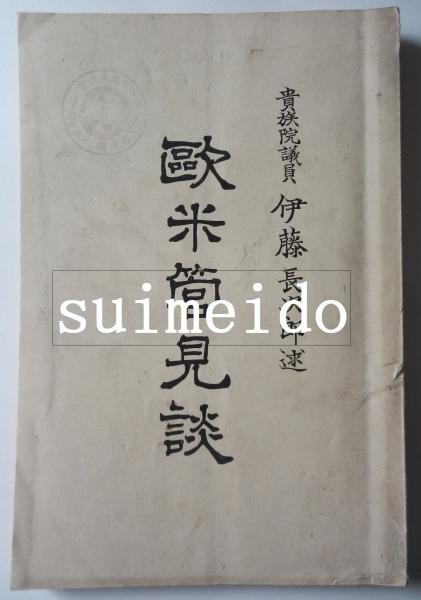 貴族院議員 伊藤長次郎述
歐米管見談
suimeido